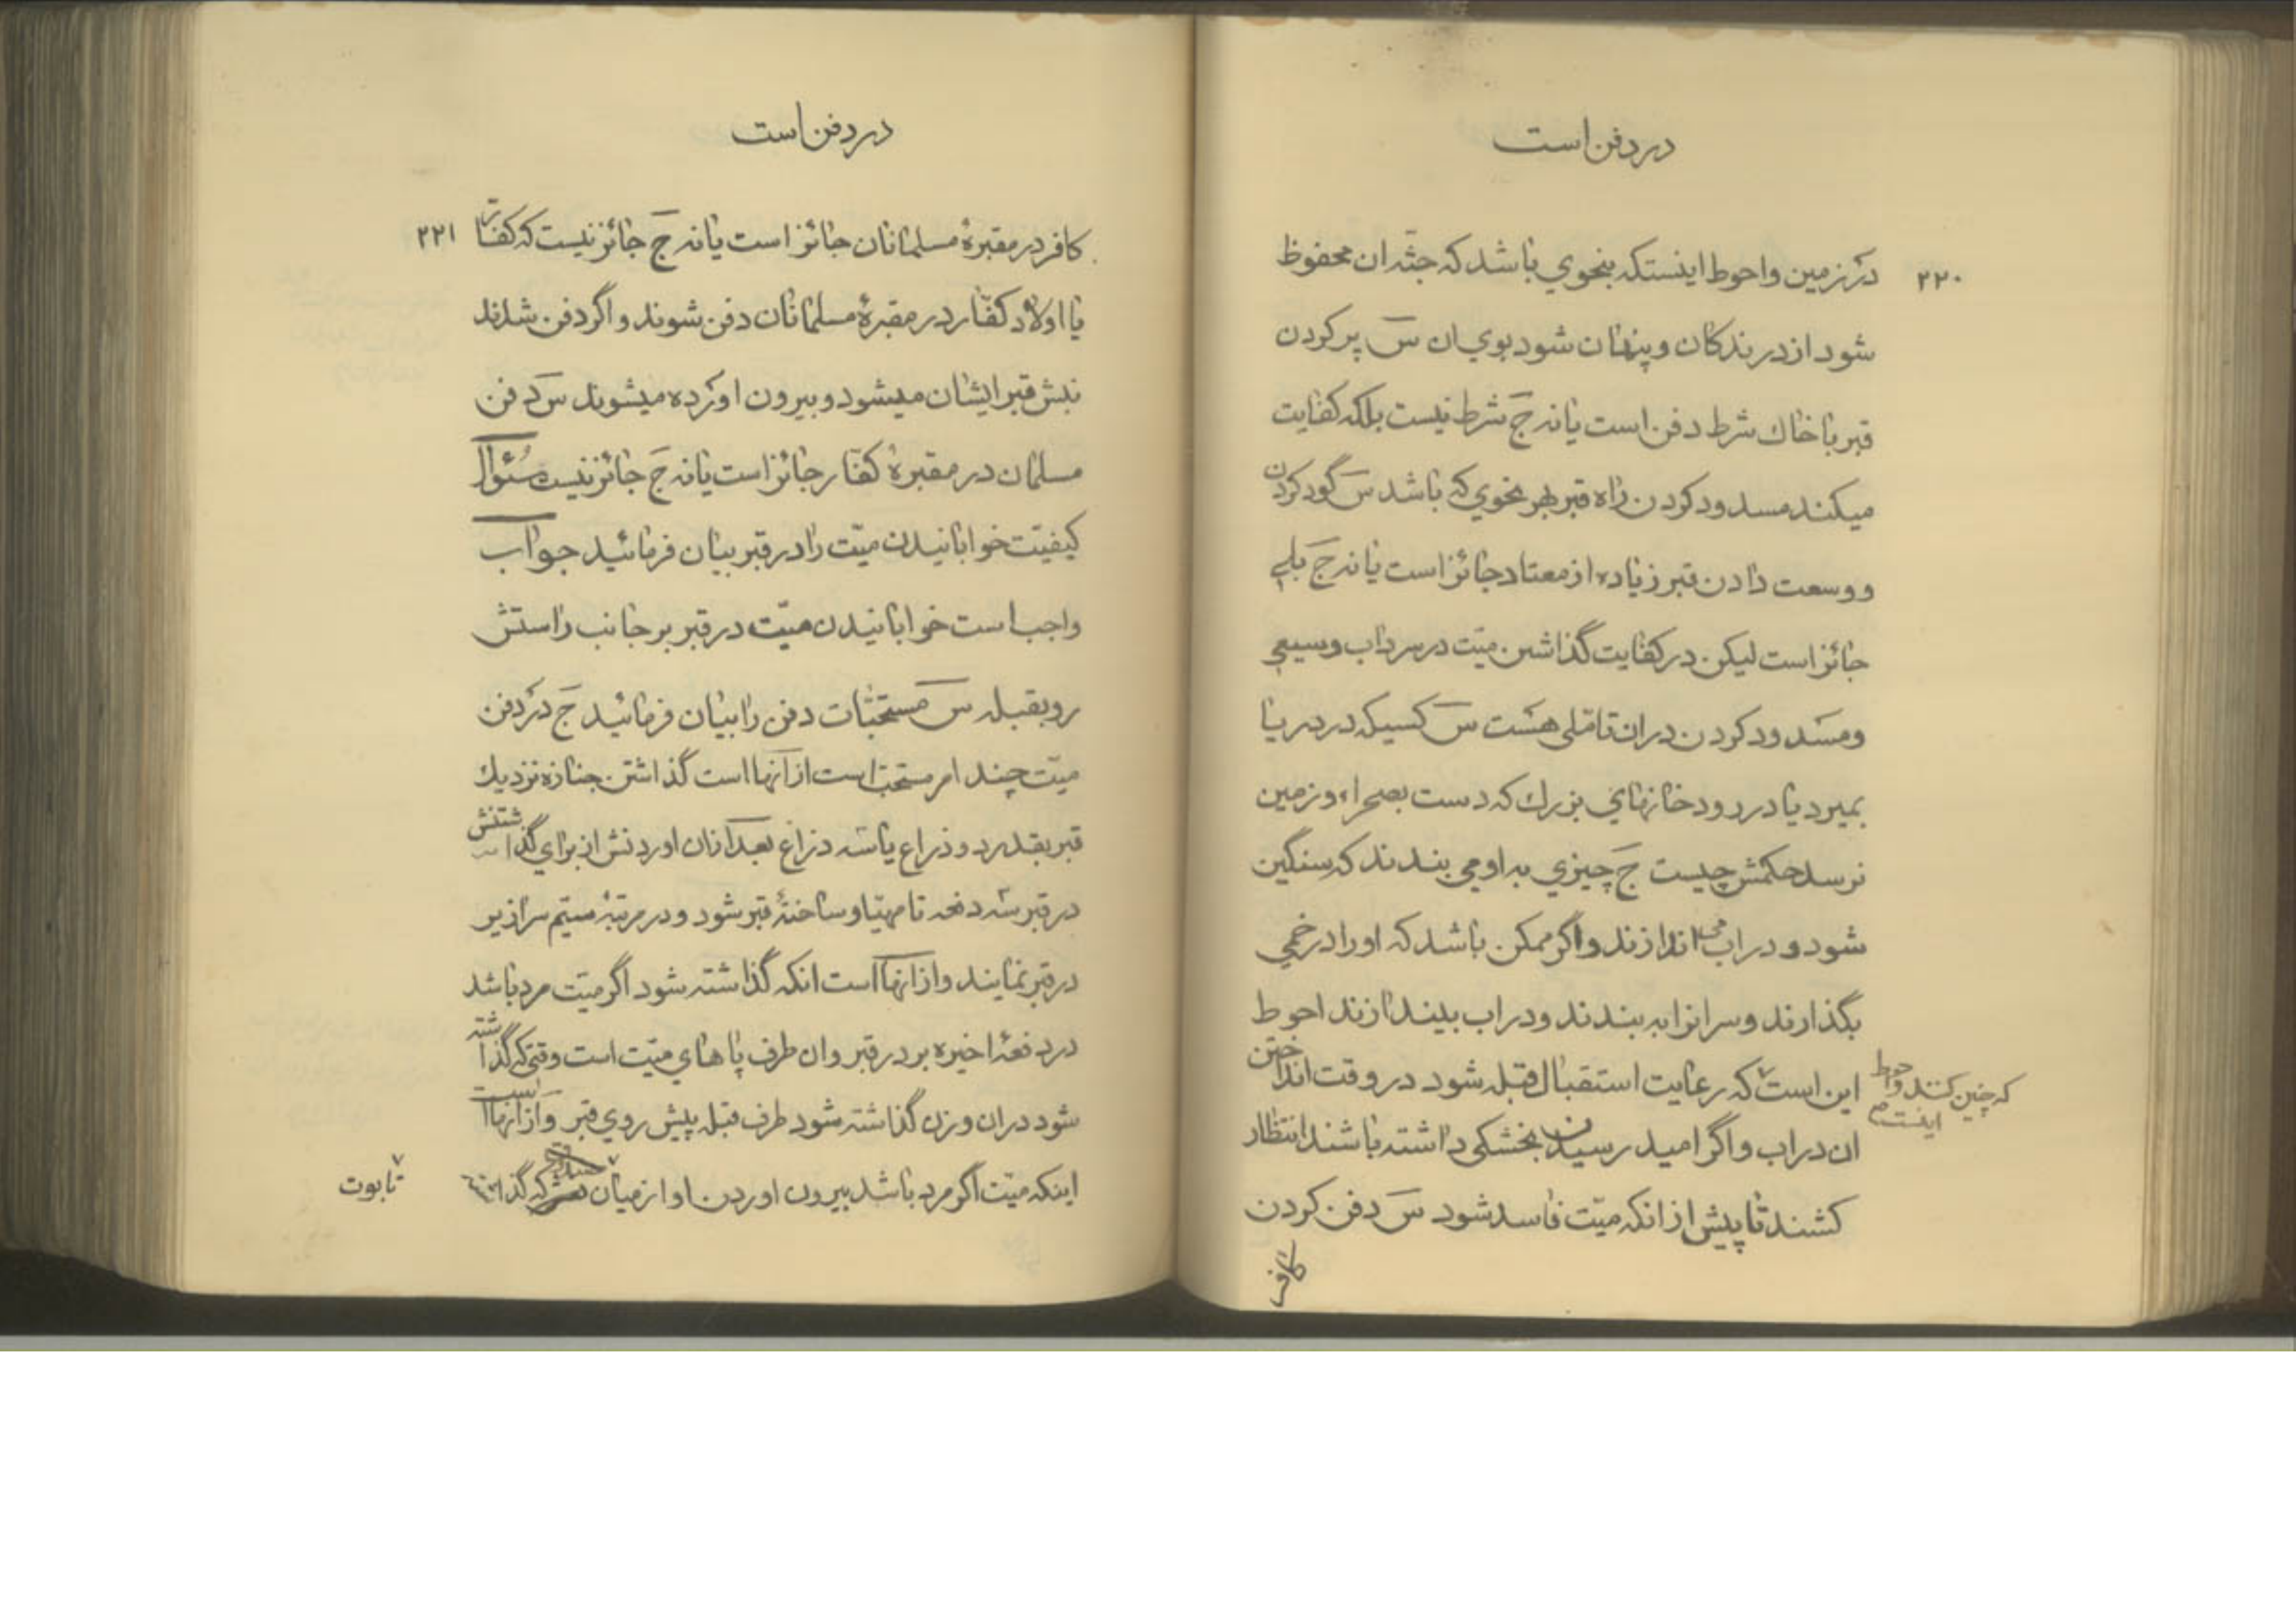 در دفن است
۲۲۰
در زمین و احوط اینستکه بنحوی باشد که جثّه ان محفوظ
شود از درندکان و پنهان شود بوی ان س پر کردن
قبر با خاک شرط دفن است یا نه ج شرط نیست بلکه کفایت
میکند مسدود کردن راه قبر بهر نحوی که باشد س گود کردن
و وسعت دادن قبر زیاده از معتاد جائز است یا نه ج بلی
جائز است لیکن در کفایت گذاشتن میّت در سرداب وسیعی
و مسدود کردن در ان تامّلی هست س کسیکه در دریا
بمیرد یا در رودخانهای بزرك که دست بصحراء و زمین
نرسد حکمش چیست ج چیزی به او می بندند که سنگین
شود و در اب می اندازند و اگر ممکن باشد که او را در خمی
بگذارند و سر انرا به بندند و در اب بیندازند احوط
این است که رعایت استقبال قبله شود در وقت انداختن
که چنین کنند و احوط
اینست
ان در اب و اگر امید رسیدن بخشکی داشته باشند انتظار
کشند تا پیش از انکه میّت فاسد شود س دفن کردن
کافر
در دفن است
۲۲۱
کافر در مقبرهٔ مسلمانان جائز است یا نه ج جائز نیست که کفّار
یا اولاد کفّار در مقبرهٔ مسلمانان دفن شوند و اگر دفن شدند
نبش قبر ایشان میشود و بیرون اورده میشوند س دفن
مسلمان در مقبرهٔ کفّار جائز است یا نه ج جائز نیست سئوال
کیفیّت خوابانیدن میّت را در قبر بیان فرمائید جواب
واجب است خوابانیدن میّت در قبر بر جانب راستش
رو بقبله س مستحبّات دفن را بیان فرمائید ج در دفن
میّت چند امر مستحبّ است از انها است گذاشتن جنازه نزدیك
قبر بقدر دو ذراع یا سه ذراع بعد از ان اوردنش از برای گذاشتنش
در قبر سه دفعه تا مهیّا و ساختهٔ قبر شود و در مرتبهٔ سیّم سرازیر
در قبر نمایند و از انها است انکه گذاشته شود اگر میّت مرد باشد
در دفعهٔ اخیره بر در قبر و ان طرف پاهای میّت است وقتی که گذاشته
شود در ان و زن گذاشته شود طرف قبله پیش روی قبر و از انها است
اینکه میّت اگر مرد باشد بیرون اوردن او از میان که
تابوت